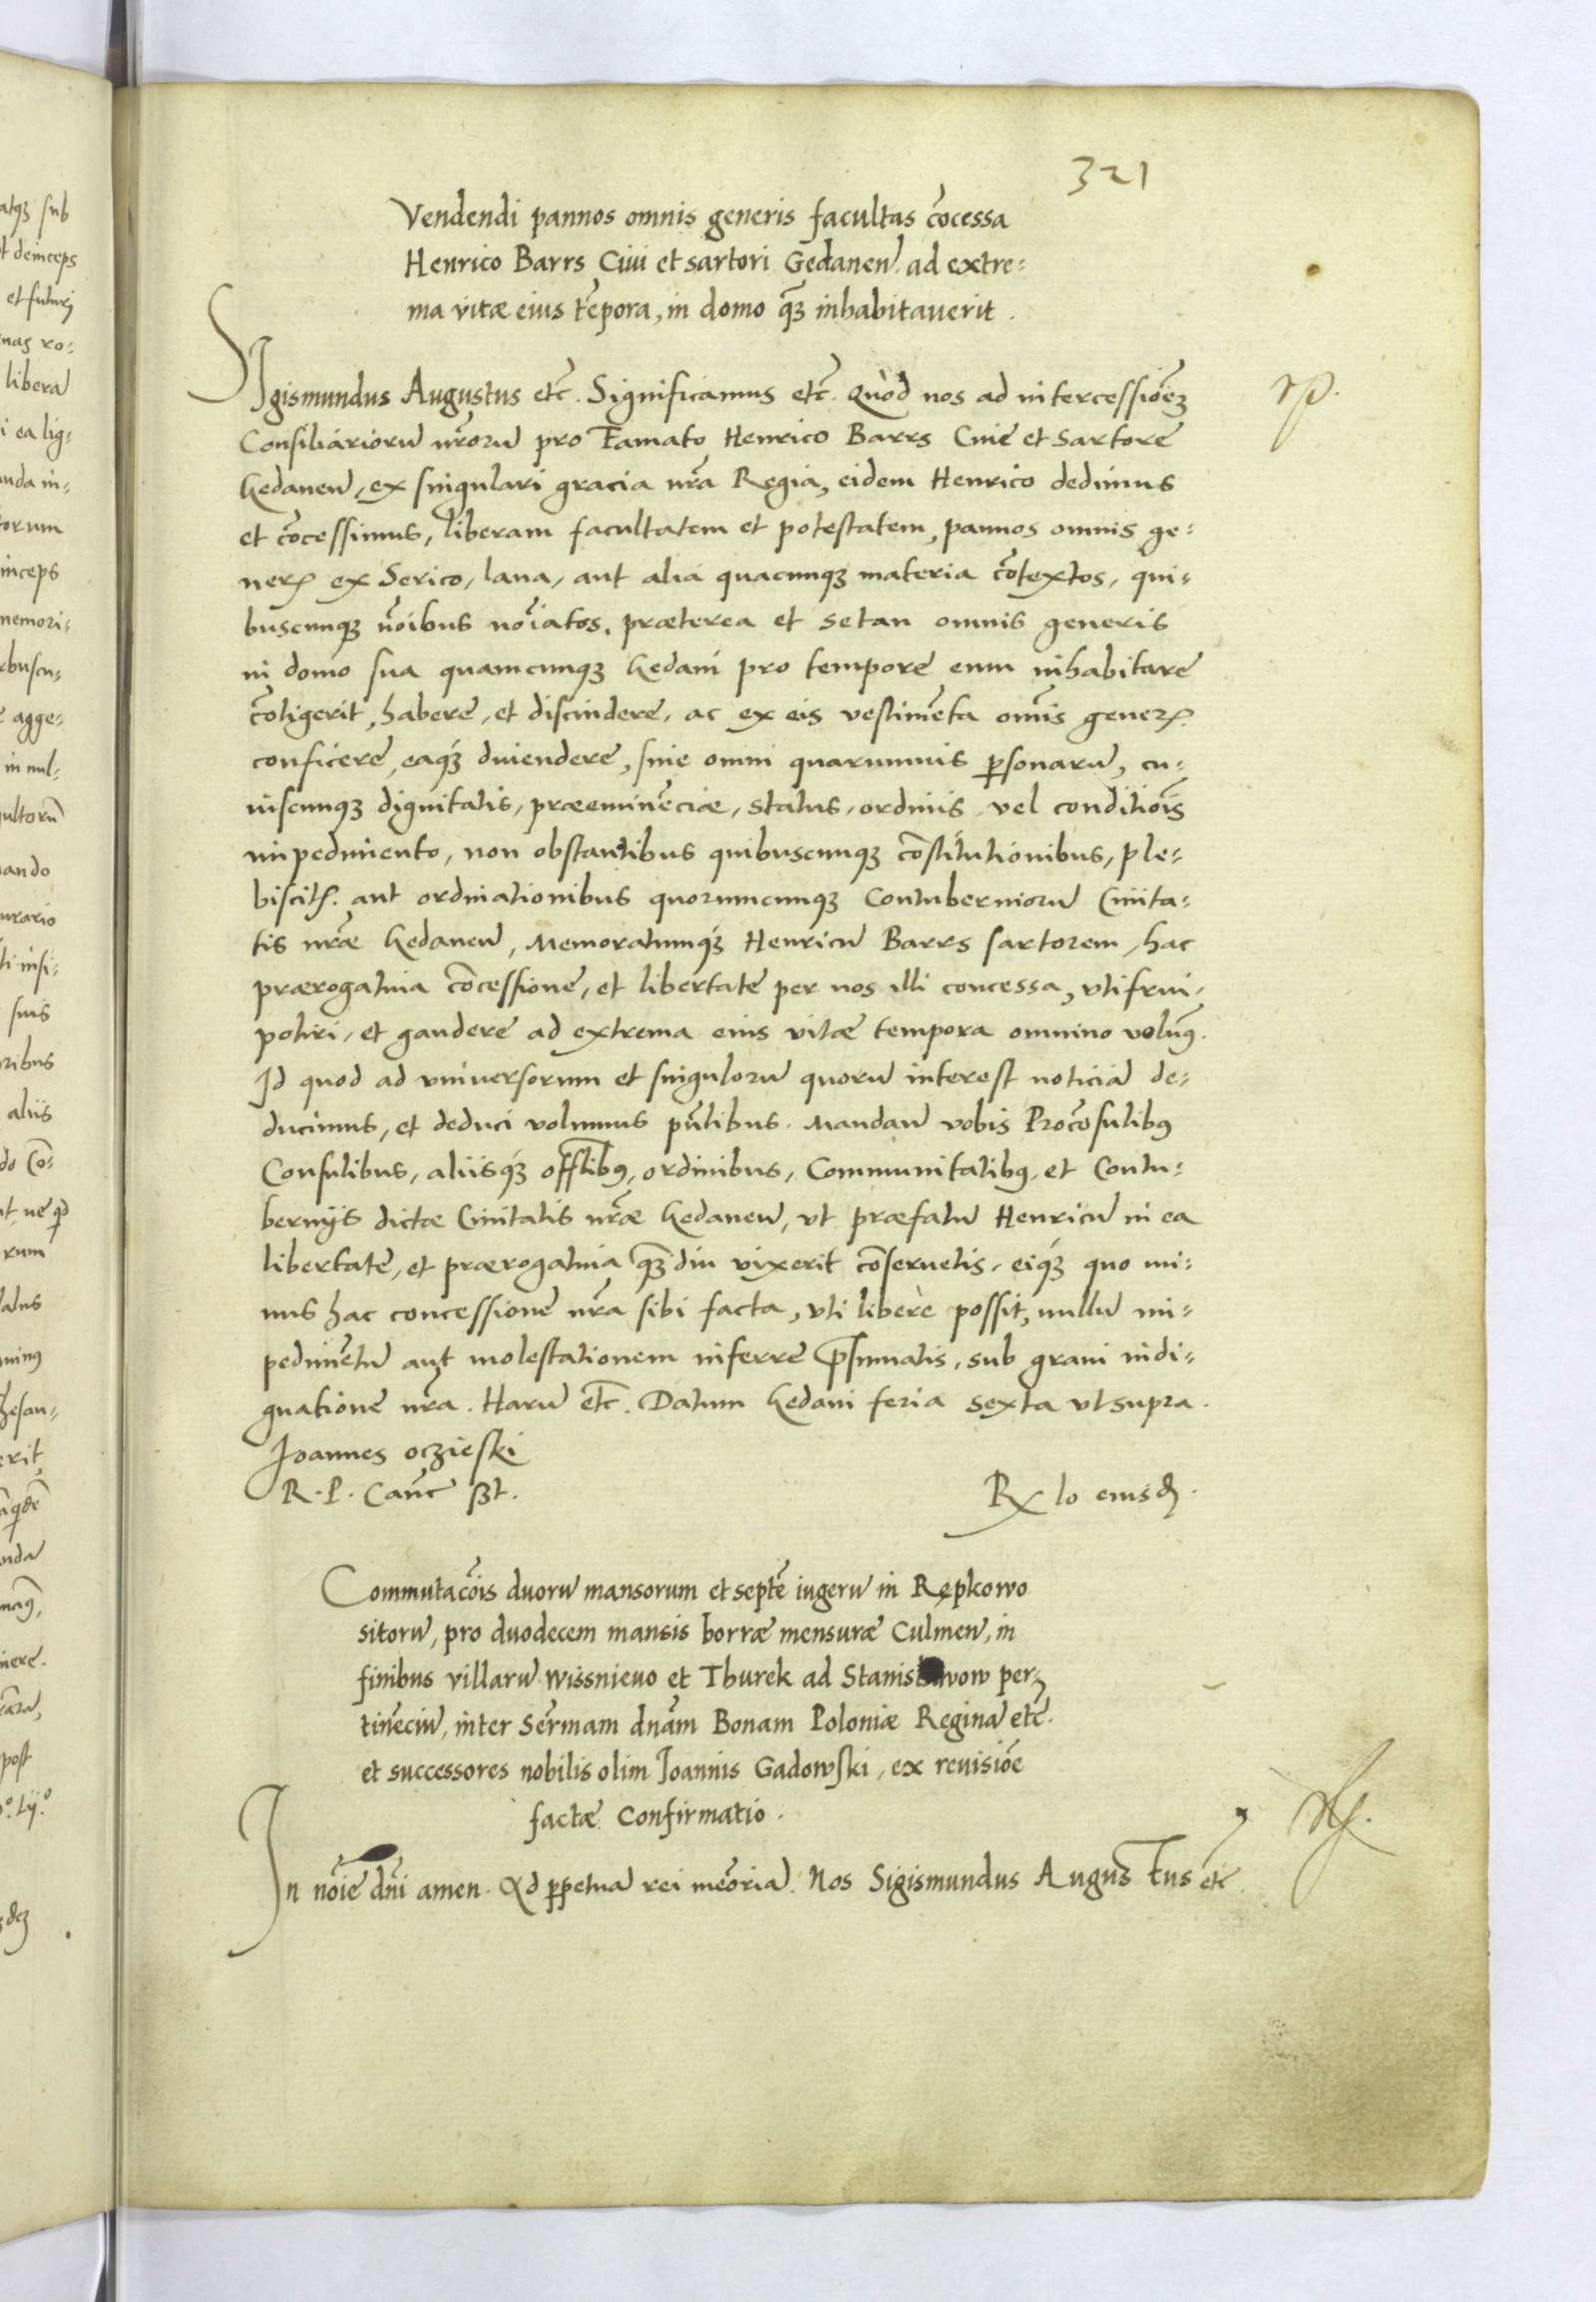 321
Vendendi pannos omnis generis facultas cõcessa
Henrico Barrs Ciui et sartori Gedaneñ. ad extre:
ma vitæ eius tẽpora, in domo quã inhabitauerit.
SIgismundus Augustus etc̃. Significamus etc̃. Quòd nos ad intercessioẽm
Consiliariorũ nr̃orũ pro Famato Henrico Barrs Ciue et Sartore
Gedaneñ, ex singulari gracia nr̃a Regia, eidem Henrico dedimus
et cõcessimus, liberam facultatem et potestatem, pannos omnis ge:
neris ex Serico, lana, aut alia quacunqȝ materia cõtextos, qui:
buscunqȝ nõibus noĩatos, præterea et setan omnis generis
in domo sua quamcunqȝ Gedani pro tempore eum inhabitare
cõtigerit, habere, et discindere, ac ex eis vestimẽta omñis generis
conficere, eaqȝ diuendere, sine omni quarumuis personarũ, cu:
iuscunqȝ dignitatis, præeminẽciæ, status, ordinis vel conditiois
impedimento, non obstantibus quibuscunqȝ cõstitutionibus, ple:
biscitis aut ordinationibus quorumcunqȝ Contuberniorũ Ciuita:
tis nr̃æ Gedaneñ, Memoratumqȝ Henricũ Barrs sartorem, hac
prærogatiua cõcessione, et libertate per nos illi concessa, vti frui,
potiri, et gaudere ad extrema eius vitæ tempora omnino volumꝰ.
Id quod ad vniuersorum et singulorũ quorũ interest noticiã de:
ducimus, et deduci volumus pñtibus. Mandañ vobis Procõsulibꝰ
Consulibus, aliisqȝ offitibꝰ, ordinibus, Communitatibꝰ, et Contu:
bernijs dictæ Ciuitatis nr̃æ Gedaneñ, vt præfatũ Henricũ in ea
libertate, et prærogatiua quãdiu vixerit cõseruetis, eiqȝ quo mi:
nus hac concessione nr̃a sibi facta, vti liberè possit, nullũ im:
pedimẽtũ aut molestationem inferre præsumatis, sub graui indi:
gnatione nr̃a. Harũ etc̃. Datum Gedani feria sexta vt supra.
Joannes oczieski
R. P. Canc̃ sst.
Rx lo eiusd.
Commutac̃ois duorũ mansorum et septẽ iugerũ in Rępkowo
sitorũ, pro duodecem mansis borræ mensuræ Culmeñ, in
finibus villarũ wissnieuo et Thurek ad Stanislawow per:
tinẽciũ, inter Serm̃am dnãm Bonam Poloniæ Reginã etc̃.
et successores nobilis olim Joannis Gadowski, ex reuisiõe
factæ Confirmatio.
In nõie dñi amen. Ad perpetuã rei meõriã. Nos Sigismundus Augustus etc̃